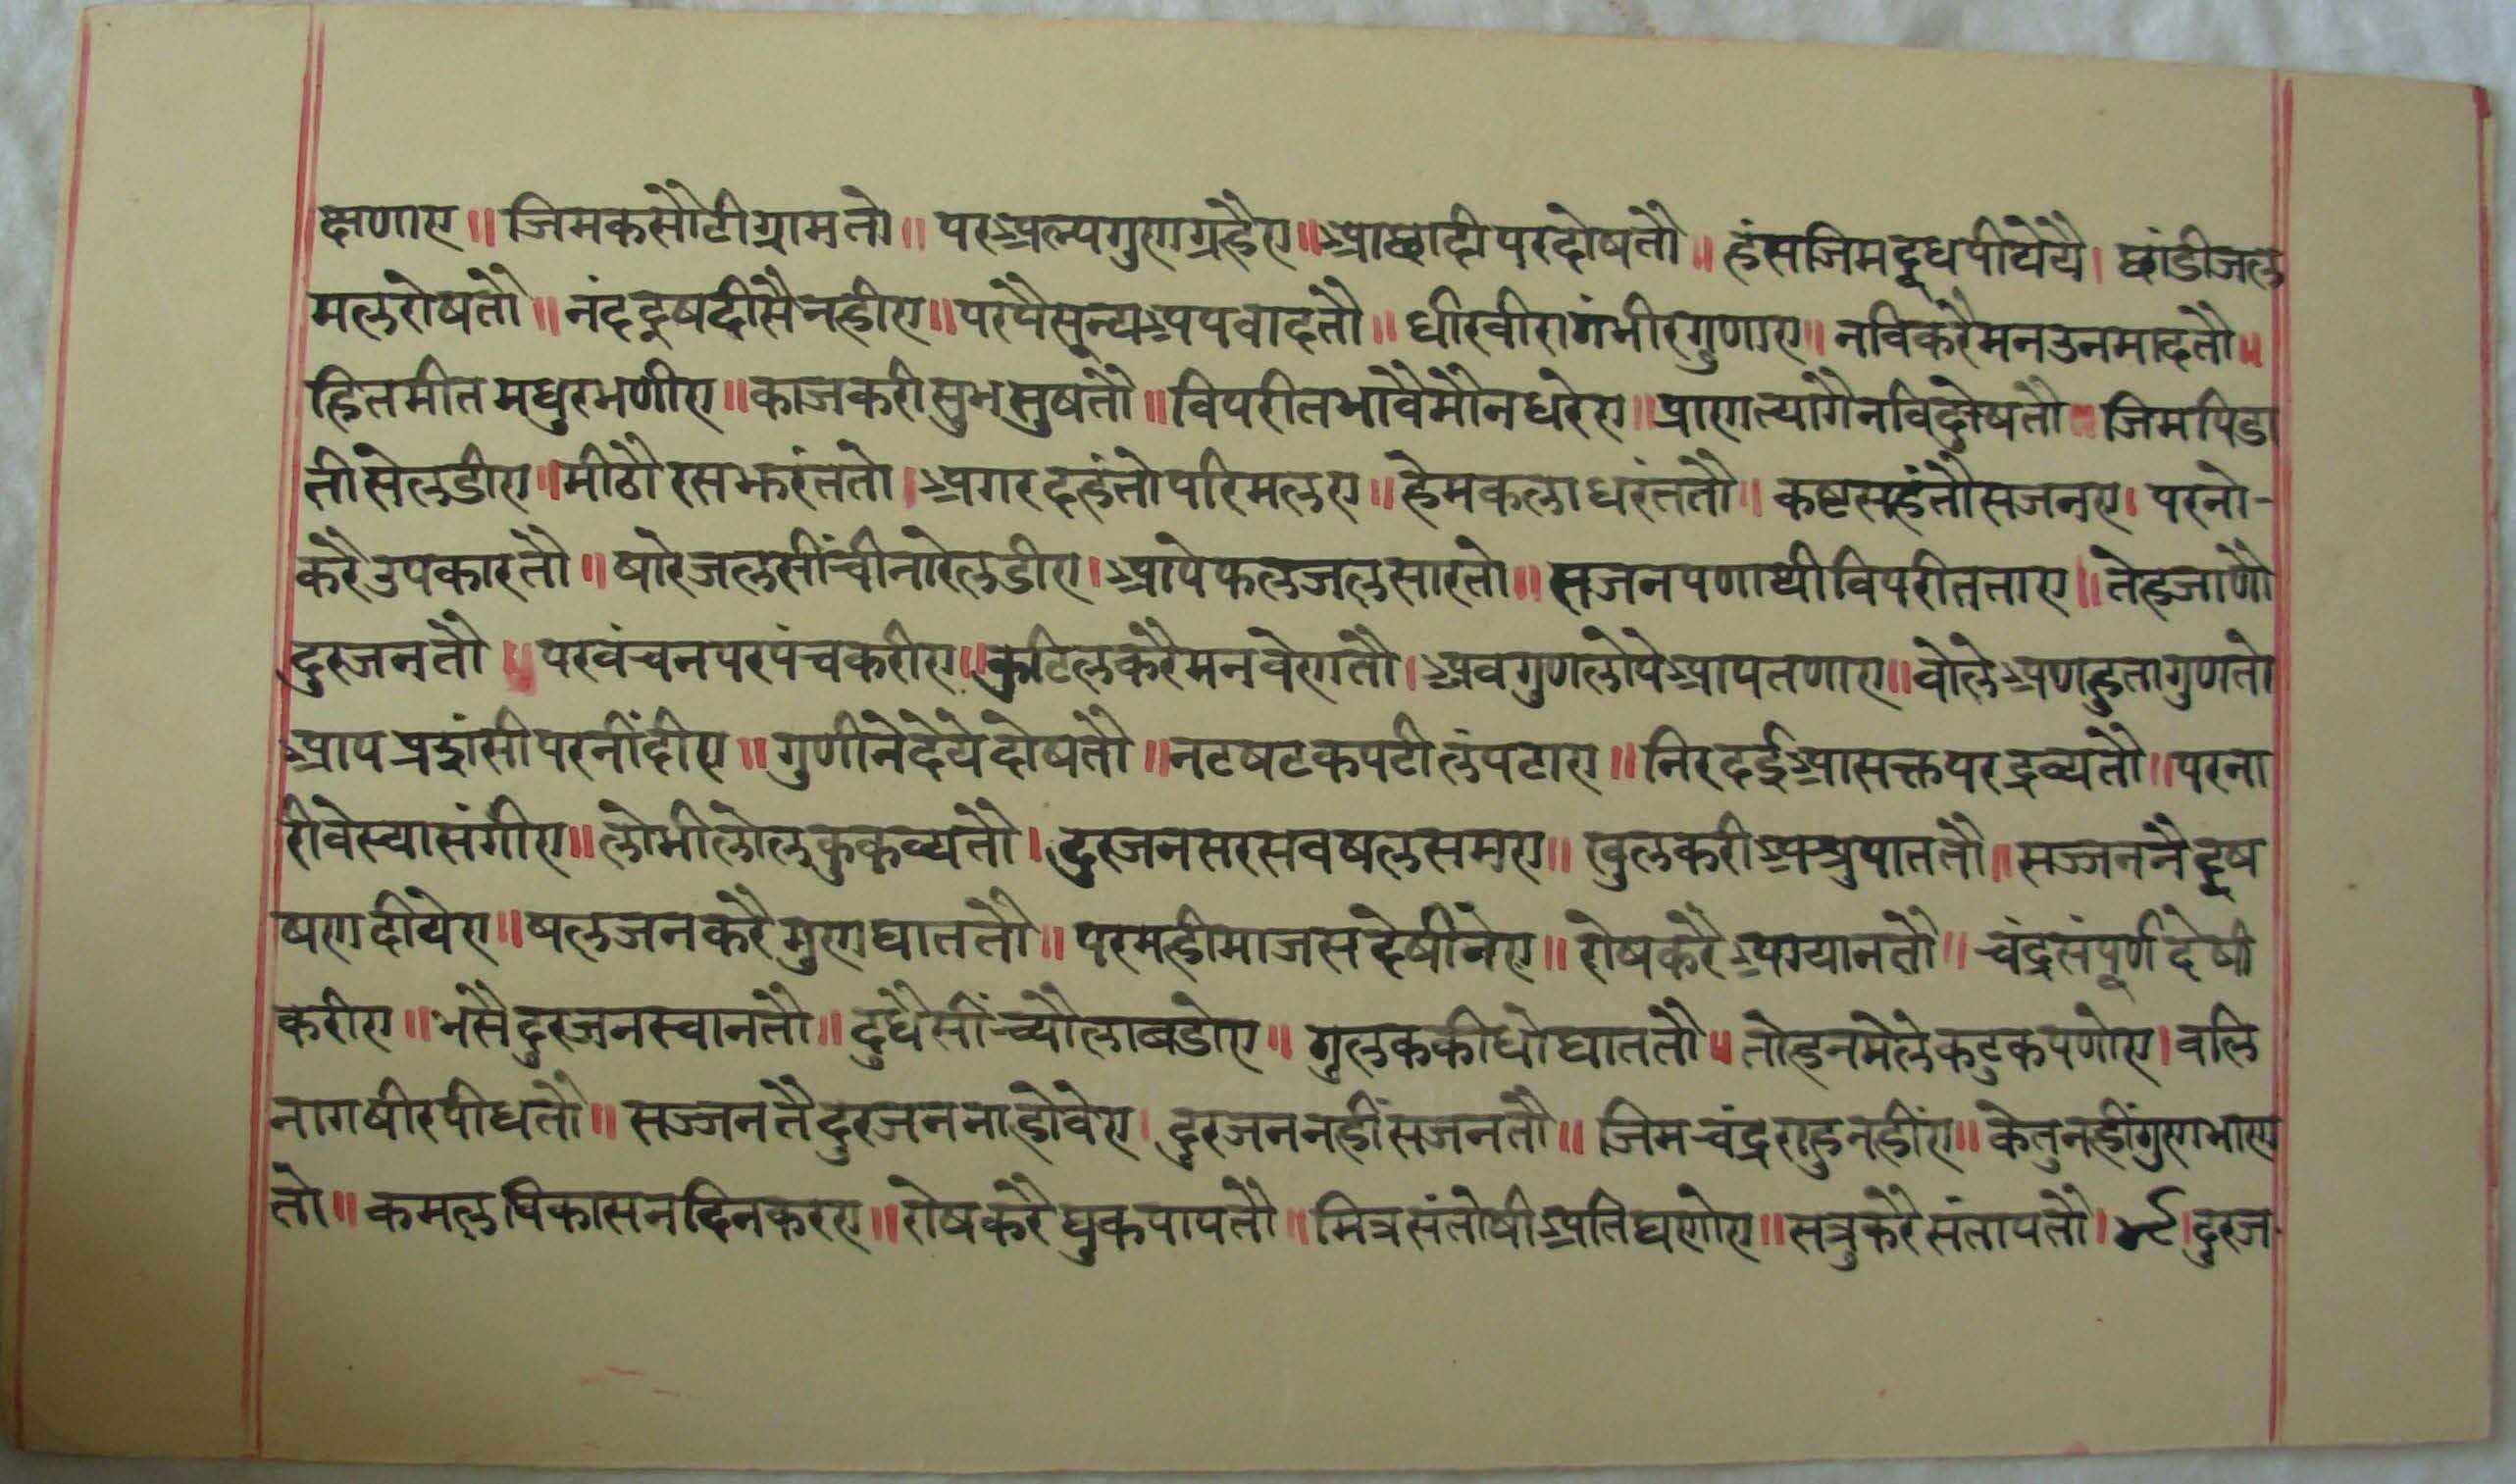 क्षणाए ॥ जिमकसौटीग्रामतो ॥ परअल्पगुणग्रहैए ॥ आछादीपरदोषतौ ॥ हंसजिमदूधपीयेयै । छांडीजल
मलरोषतौ ॥ नंददूषदीसैनहीए ॥ परपैसून्यअपवादतौ ॥ धीरवीरागंभीरगुणाए ॥ नविकरैमनउनमादतौ ॥
हितमीतमधुरभणीए ॥ काजकरीसुभसुषतौ ॥ विपरीतभावैमौनधरेए ॥ प्राणत्यागैनविदोषतौ ॥ जिमपिडा
तीसेलडीए ॥ मीठौरसझरंततो । अगरदहंतोपरिमलए ॥ हेमकलाधरंततौ ॥ कष्टसहंतौसजनए । परनो-
करैउपकारतौ ॥ षारेजलसींचीनारेलडीए । आपेफलजलसारतो ॥ सजनपणाथीविपरीतताए ॥ तेहजाणौ
दुरजनतौ ॥ परवंचनपरपंचकरीए ॥ कुटिलकरैमनवेणतौ । अवगुणलोपेआपतणाए ॥ वोलेअणहुतागुणतो
आपप्रशंसीपरनींदीए ॥ गुणीनेदेयेदोषतौ ॥ नटषटकपटीलंपटाए ॥ निरदईआसक्तपरद्रव्यतौ ॥ परना
रीवेस्यासंगीए ॥ लोभीलोलुकुकव्यतौ । दुरजनसरसवषलसमए ॥ खुलकरीअश्रुपाततौ ॥ सज्जननैदूष
षणदीयेए ॥ षलजनकरैगुणघाततौ ॥ परमहीमाजसदेषीनेए ॥ रोषकरैअग्यानतौ ॥ चंद्रसंपूर्णदेषी
करीए ॥ भसैदुरजनस्वानतौ ॥ दुधैसींच्यौलाबडोए ॥ गुलककीधोघाततौ ॥ तोहनमेलेकटुकपणोए । वलि
नागषीरपीधतौ ॥ सज्जनतैदुरजननाहोवेए । दुरजननहींसजनतौ ॥ जिमचंद्रराहुनहींए ॥ केतुनहींगुणभाण
तो ॥ कमलविकासनदिनकरए ॥ रोषकरैघुकपापतौ ॥ मित्रसंतोषीअतिघणोए ॥ सत्रुकरैसंतापतौ । दुरज-